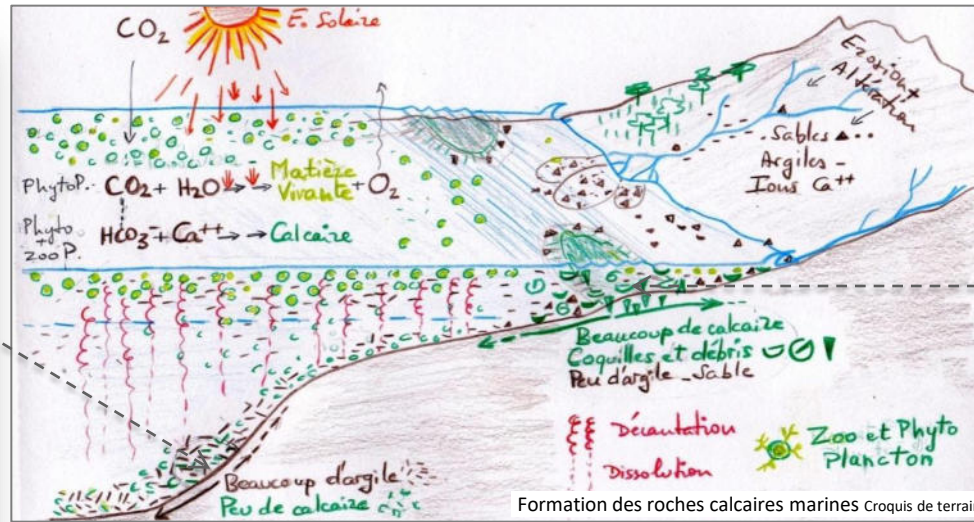 CO2
E. Solaire
Erosion +
Altération
Sables
Argiles -
Ions Ca++
PhytoP.
CO2 + H2O → → Matière Vivante + O2
Phyto
+
zooP.
HCO3- + Ca++ → → Calcaire
Beaucoup de calcaire
Coquilles et débris
Peu d'argile - Sable
Décantation
Dissolution
Zoo et Phyto
Plancton
Beaucoup d'argile
Peu de calcaire
Formation des roches calcaires marines Croquis de terrai